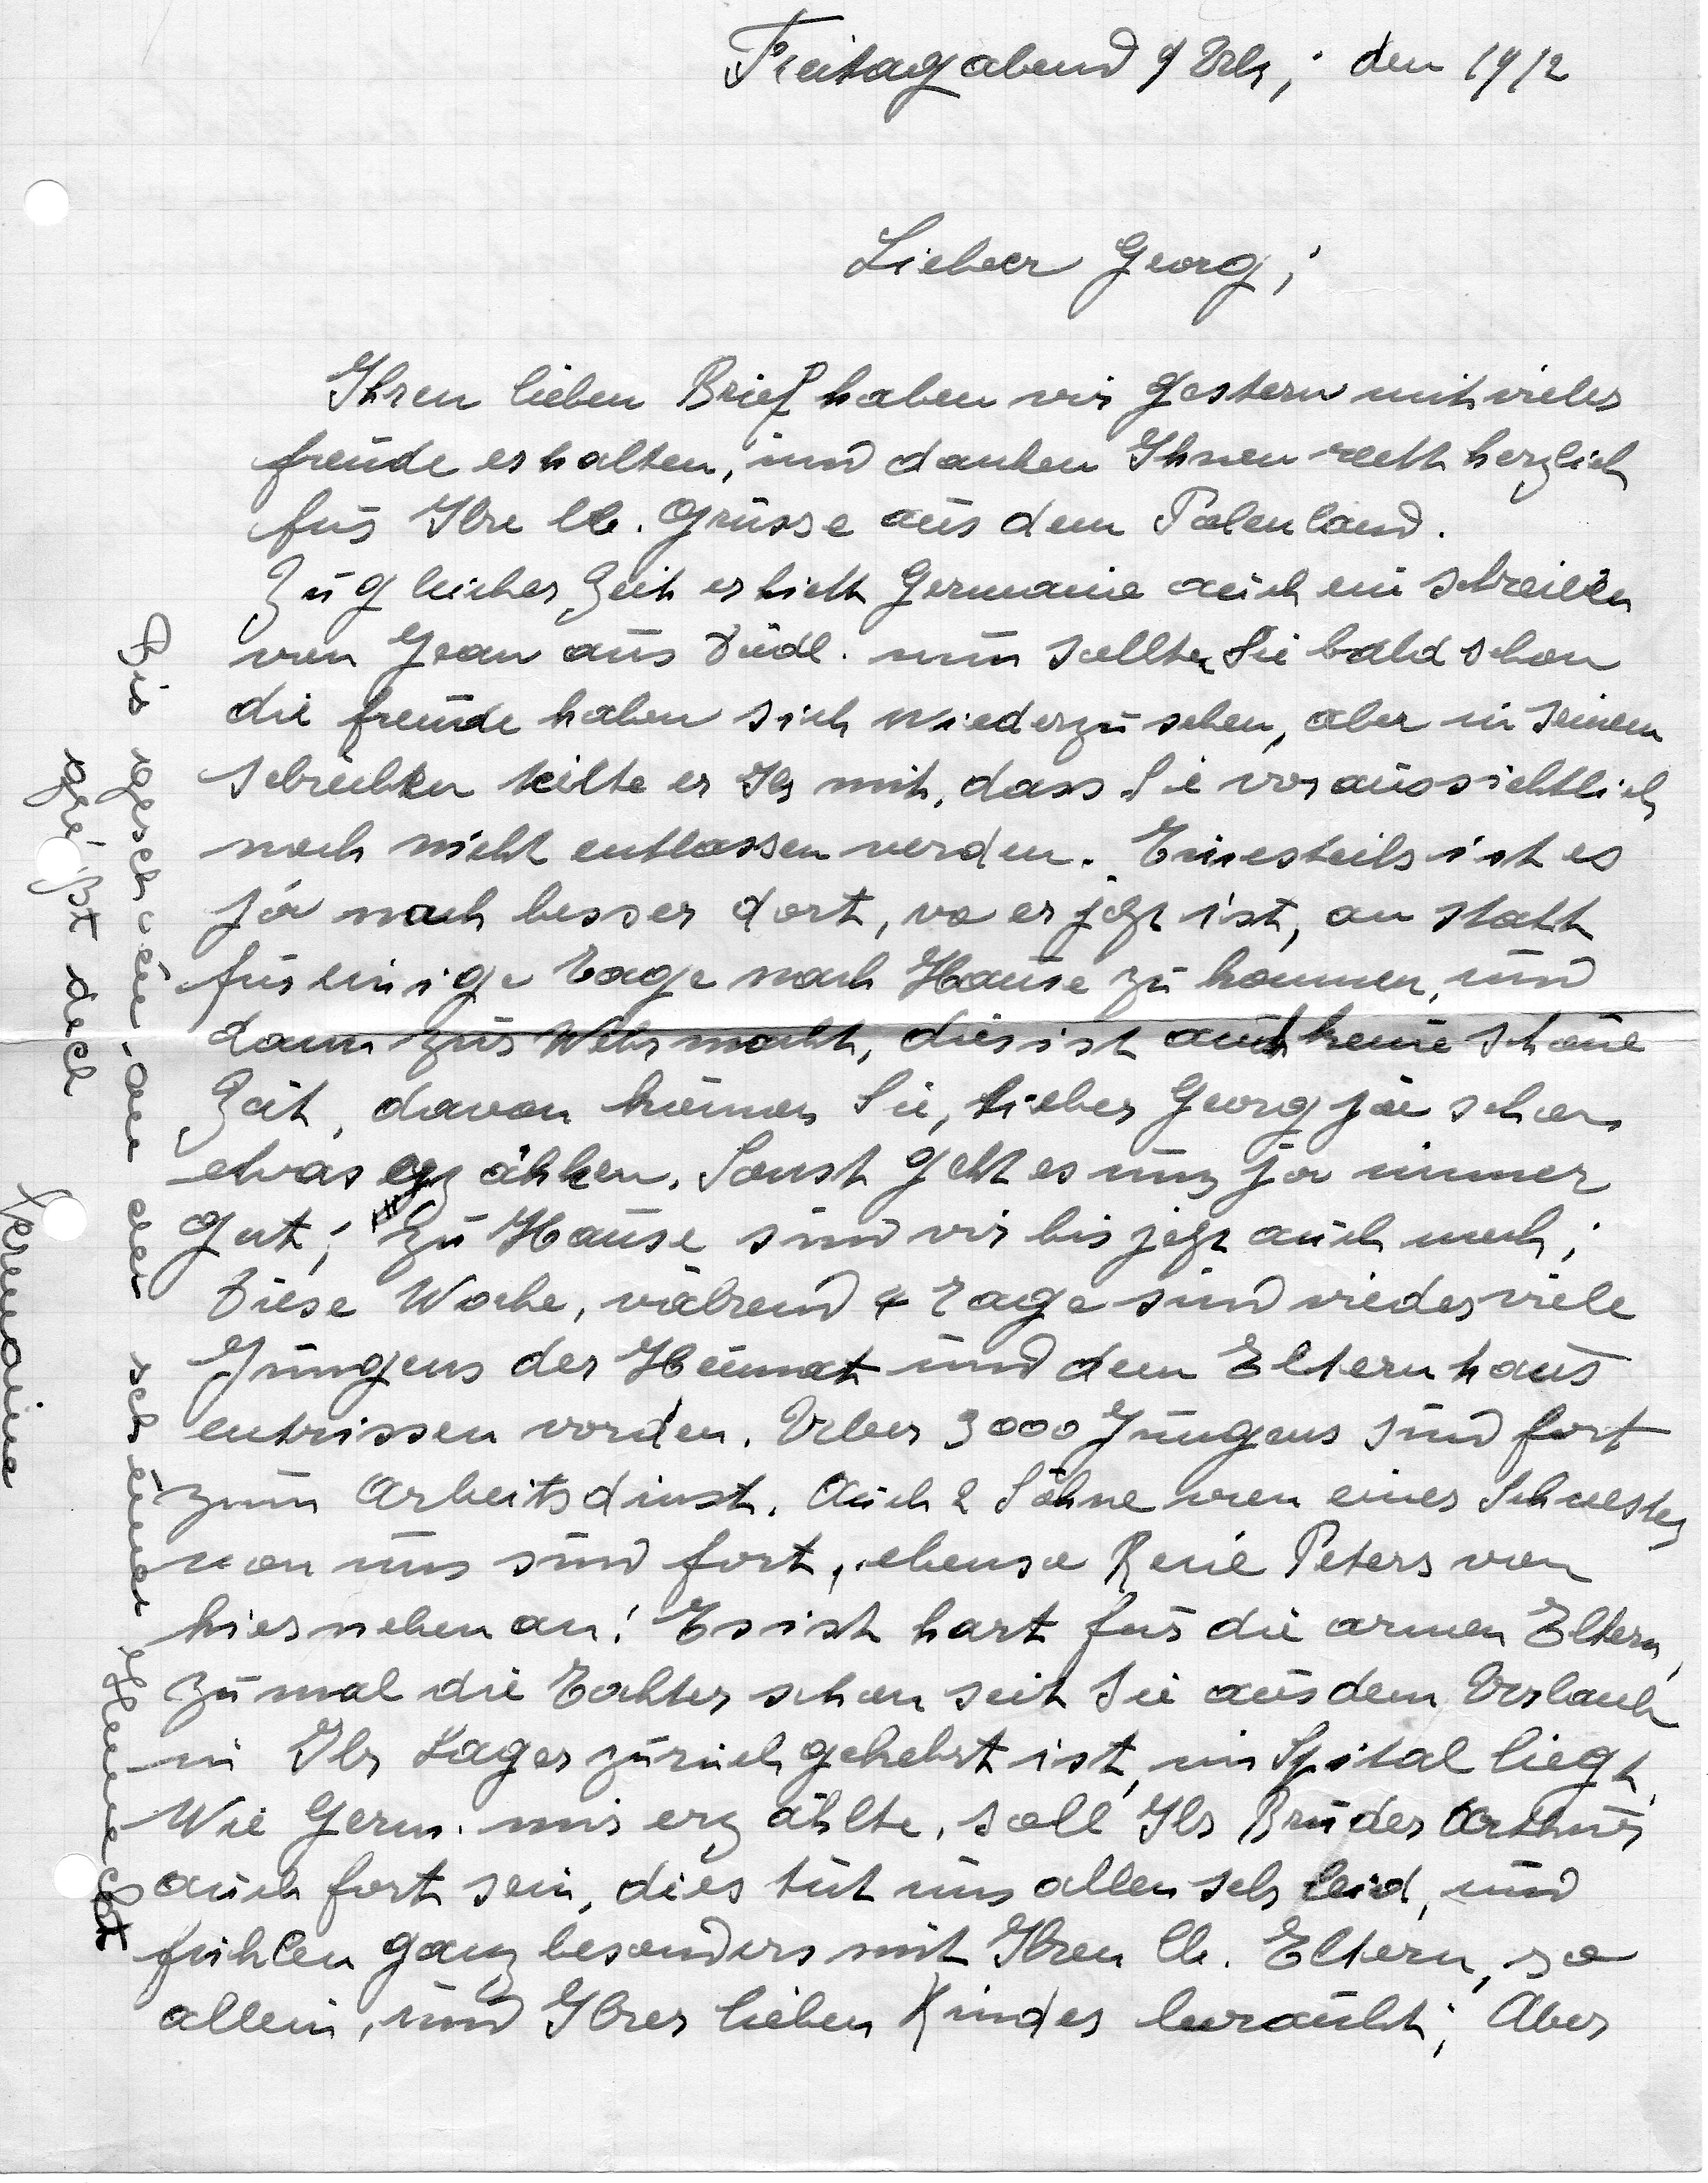 Freitagabend 9 Uhr; den 19/2
Lieber Georg;
Ihren lieben Brief haben wir gestern mit vieler
freude erhalten, und danken Ihnen recht herzlich
für Ihre lb. Grüsse aus dem Polenland.
Zu gleicher Zeit erhielt Germaine auch ein schreiben
von Jean aus Düdl. nun sollten Sie bald schon
die freude haben sich wiederzusehen, aber in seinem
schreiben teilte er Ihr mit, dass Sie voraussichtlich
noch nicht entlassen werden. Einesteils ist es
ja noch besser dort, wo er jetzt ist, an statt
für einige Tage nach Hause zu kommen, und
dann zur Wehrmacht, dies ist auch keine schöne
Zeit, davon können Sie, lieber Georg ja schon
etwas erzählen. Sonst geht es uns ja immer
gut; zu Hause sind wir bis jetzt auch noch;
Diese Woche, während 4 Tage sind wieder viele
Jungens der Heimat und dem Elternhaus
entrissen worden. Ueber 3000 Jungens sind fort
zum Arbeitsdinst. Auch 2 Söhne von einer Schwester
von uns sind fort, ebenso René Peters von
hier nebenan! Es ist hart für die armen Eltern,
zumal die Tochter schon seit Sie aus dem Urlaub
in Ihr Lager zurückgekehrt ist, im Spital liegt.
Wie Germ. mir erzählte, soll Ihr Bruder Arthur
auch fort sein, dies tut uns allen sehr leid, und
fühlen ganz besonders mit Ihren lb. Eltern, so
allein, und Ihrer lieben Kinder beraubt; Aber
Bis geschwënn an der schéiner Heemecht
gréisst dech
Germaine